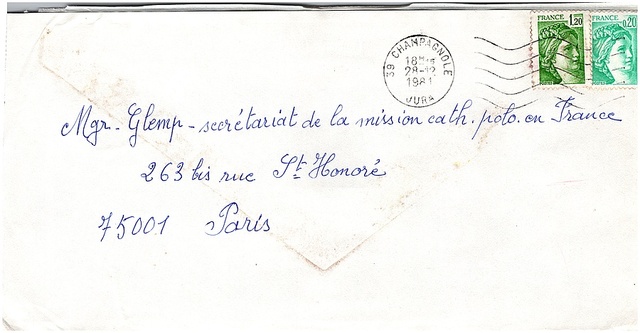 FRANCE 1,20 FRANCE 0,20
39 CHAMPAGNOLE
18H15
28-12
1981
JURA
Mgr. Glemp - secrétariat de la mission cath. polo. en France
263 bis rue St Honoré
75001 Paris